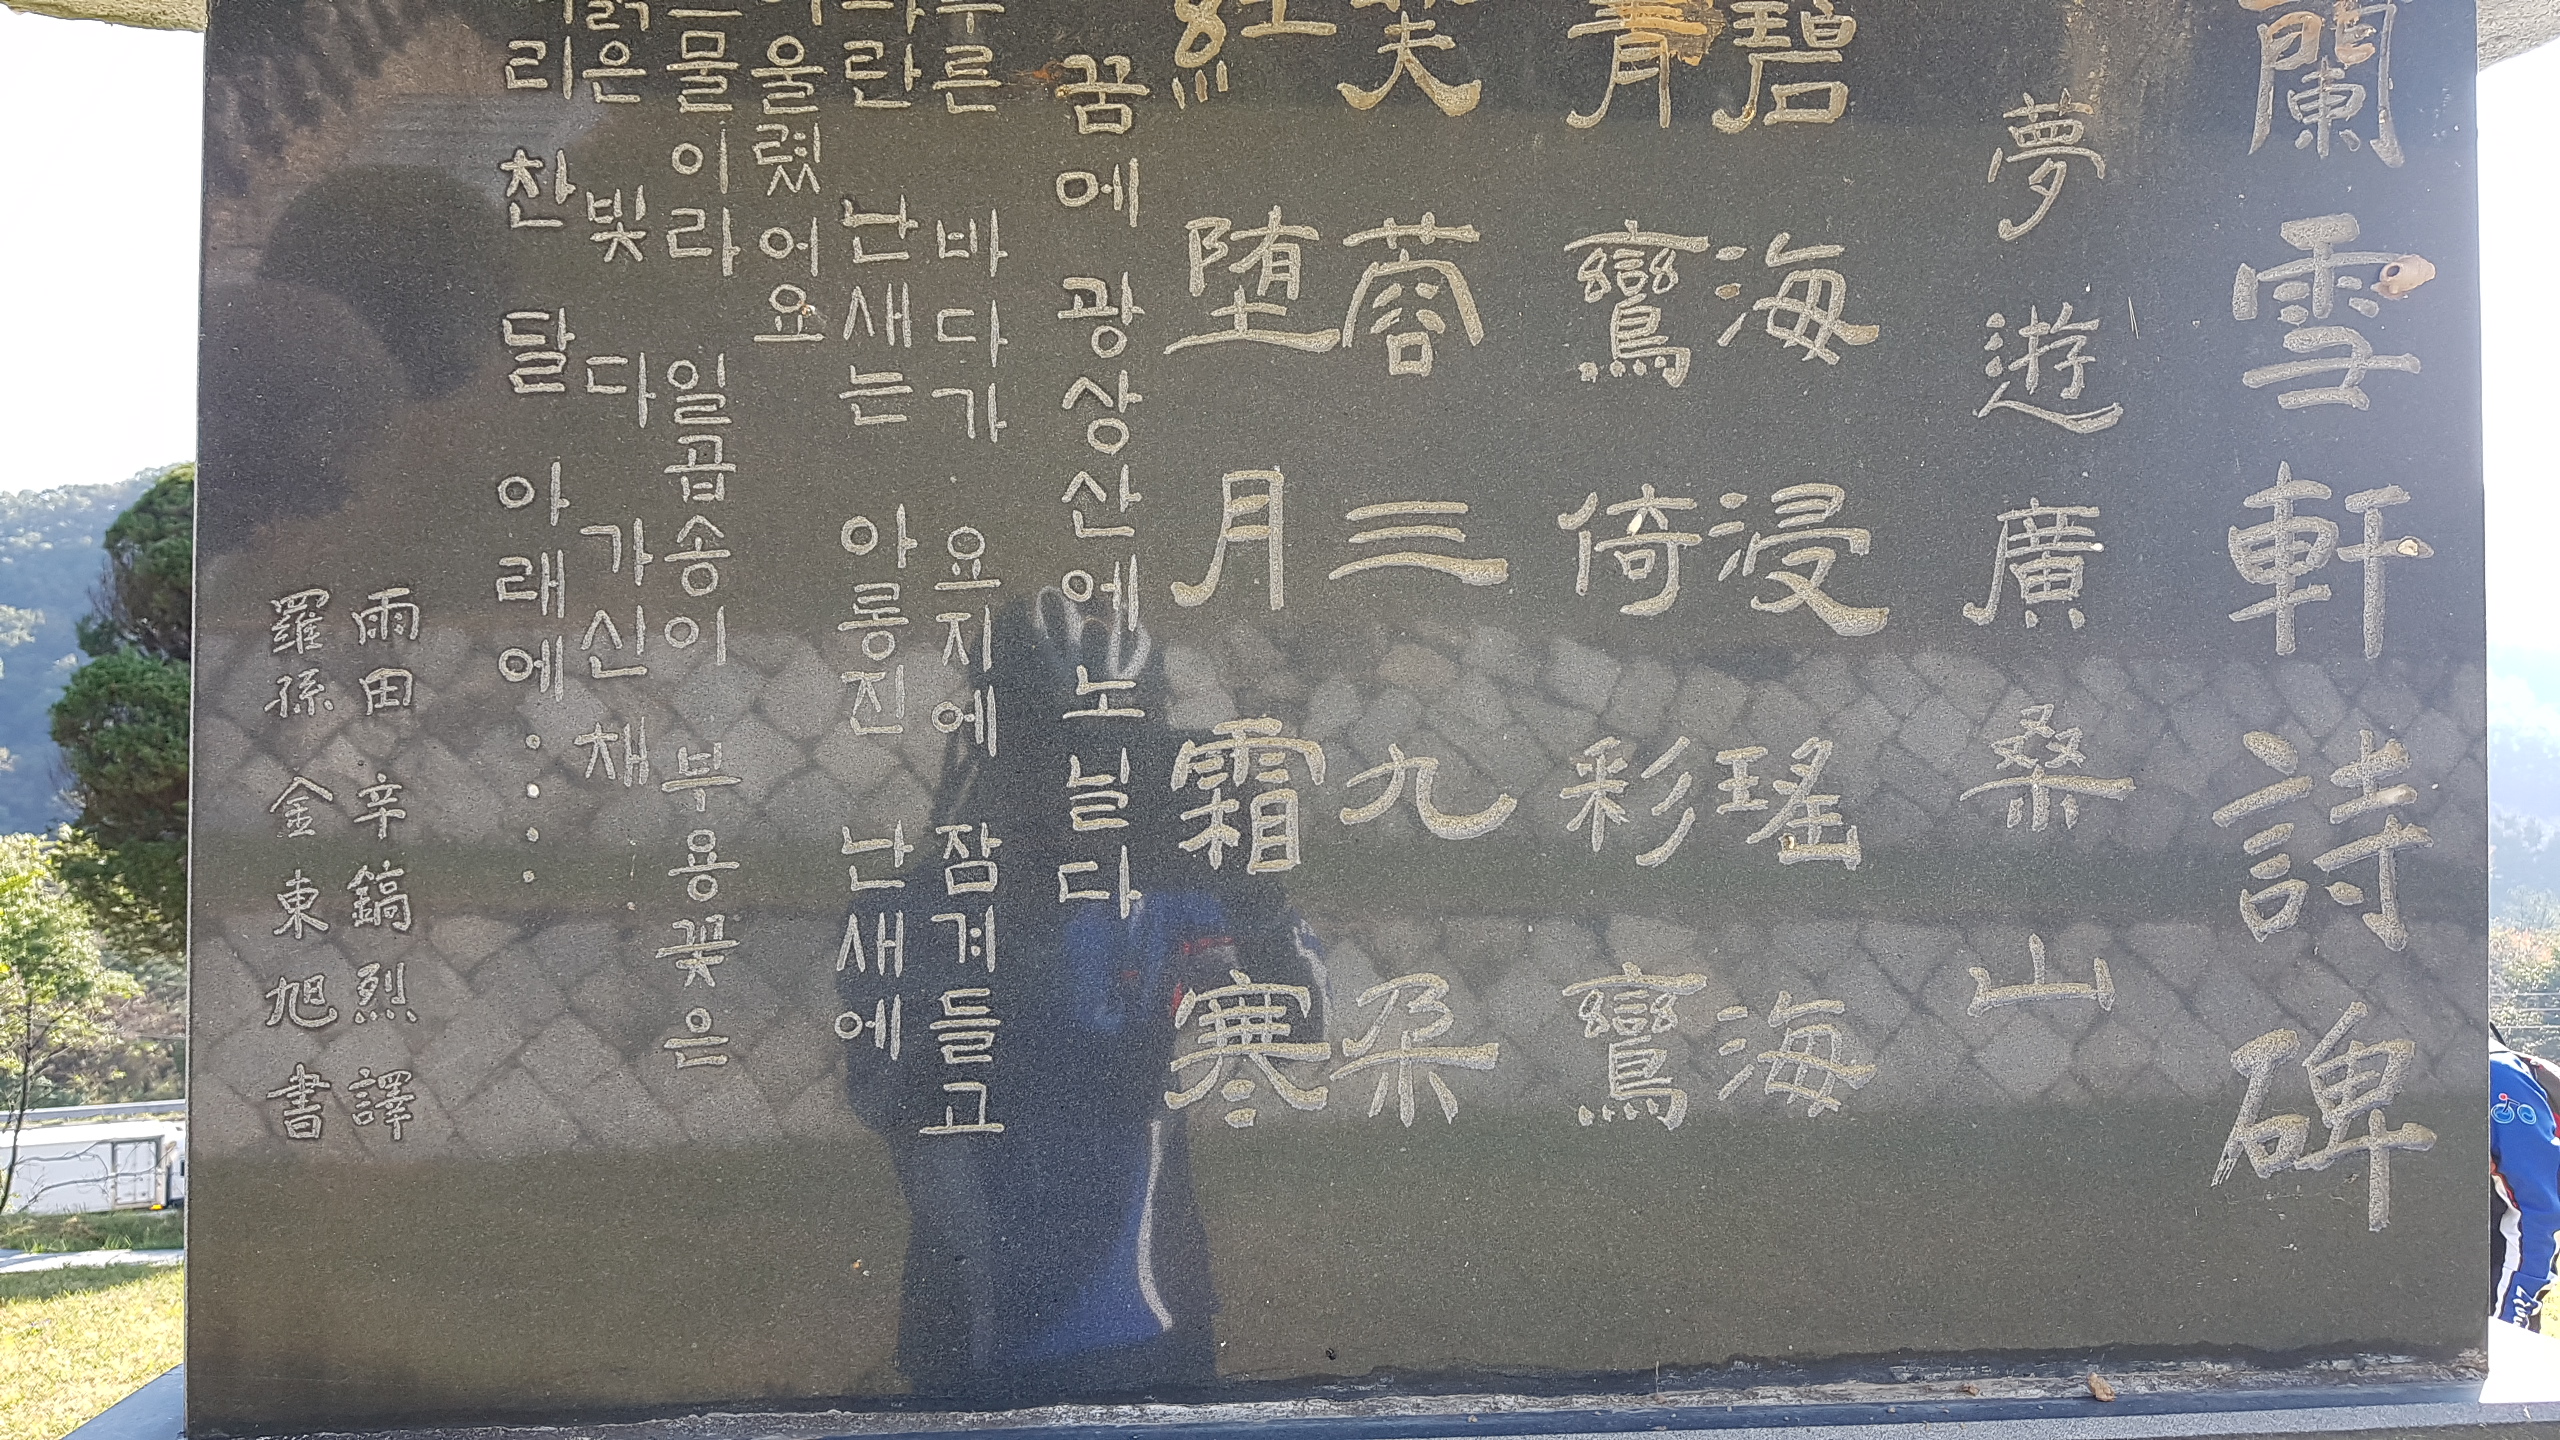 蘭雪軒詩碑
夢遊廣桑山
碧海浸瑤海
青鸞倚彩鸞
芙蓉三九朵
紅堕月霜寒
꿈에 광상산에 노닐다
푸른 바다가 요지에 잠겨들고
파란 난새는 아롱진 난새에
어울렸어요
스물이라 일곱송이 부용꽃은
붉은 빛 다 가신 채
서리 찬 달 아래에·····
雨田 辛鎬烈 譯
羅孫 金東旭 書